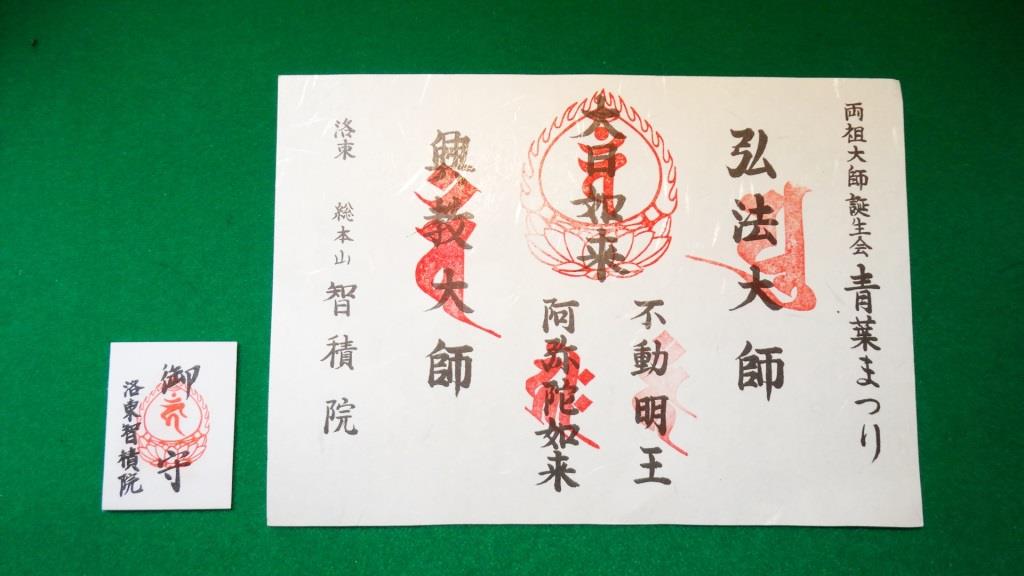 両祖大師誕生会 青葉まつり
弘法大師
大日如来
不動明王
阿弥陀如来
興教大師
洛東 総本山 智積院
御守
洛東智積院